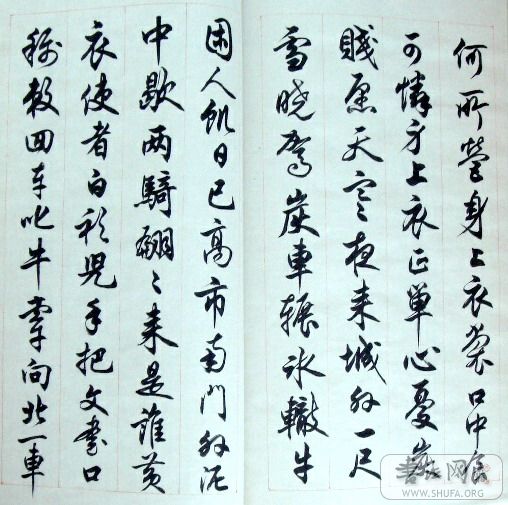 何所營身上衣裳口中食
可憐身上衣正單心憂炭
賤願天寒夜来城外一尺
雪曉駕炭車輾冰轍牛
困人飢日已高市南門外泥
中歇两騎翩々来是誰黄
衣使者白衫兒手把文書口
稱敕回車叱牛牽向北一車
WWW.SHUFA.ORG